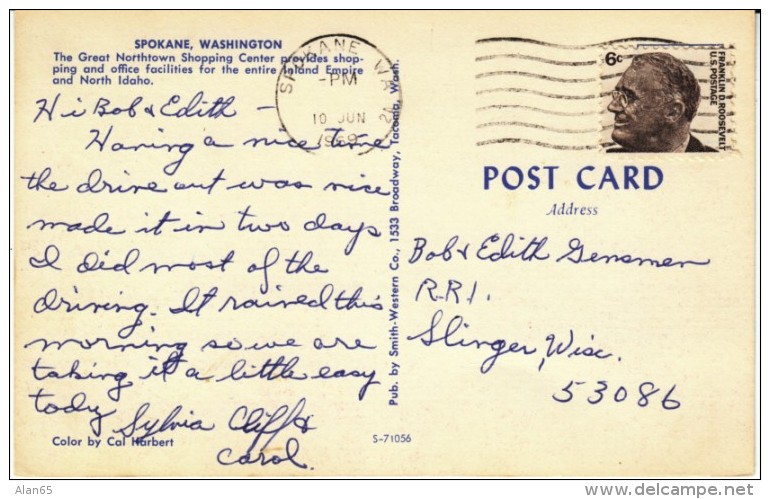 SPOKANE, WASHINGTON
The Great Northtown Shopping Center provides shop-
ping and office facilities for the entire Inland Empire
and North Idaho.
Hi Bob & Edith –
Having a nice time
the drive out was nice
made it in two days
I did most of the
driving. It rained this
morning so we are
taking it a little easy
tody
Sylvia Cliff &
Carol.
Color by Cal Harbert
S-71056
Pub. by Smith-Western Co., 1533 Broadway, Tacoma, Wash.
SPOKANE WA
-PM
10 JUN
1969
6c
FRANKLIN D. ROOSEVELT
U.S. POSTAGE
POST CARD
Address
Bob & Edith Gensmen
R.R.1.
Slinger, Wisc.
53086
Alan65
http://www.delcampe.net